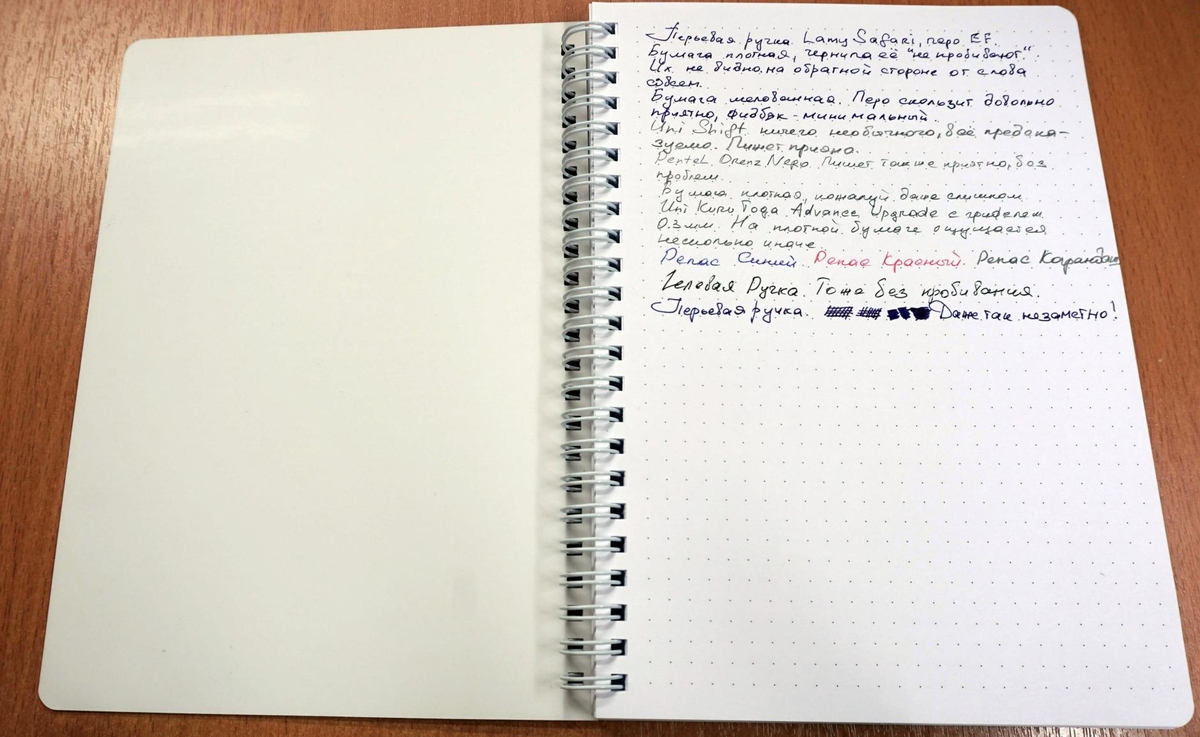 Перьевая ручка Lamy Safari, перо EF.
Бумага плотная, чернила её "не пробивают".
Их не видно на обратной стороне от слова
совсем.
Бумага мелованная. Перо скользит довольно
приятно, фидбэк - минимальный.
Uni Shift ничего необычного, всё предска-
зуемо. Пишет приятно.
Pentel Orenz Nero Пишет также приятно, без
проблем.
Бумага плотная, пожалуй даже слишком
Uni Kuru Toga Advance Upgrade с грифелем
0.3 мм. На плотной бумаге ощущается
несколько иначе.
Репас Синий Репас Красный. Репас Карандаш
Гелевая Ручка. Тоже без пробивания.
Перьевая ручка. Даже так незаметно!